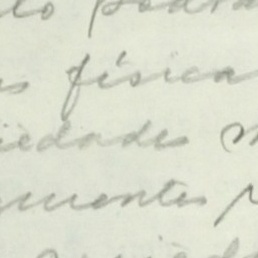 lo podra
s física
iedades m
amentes p